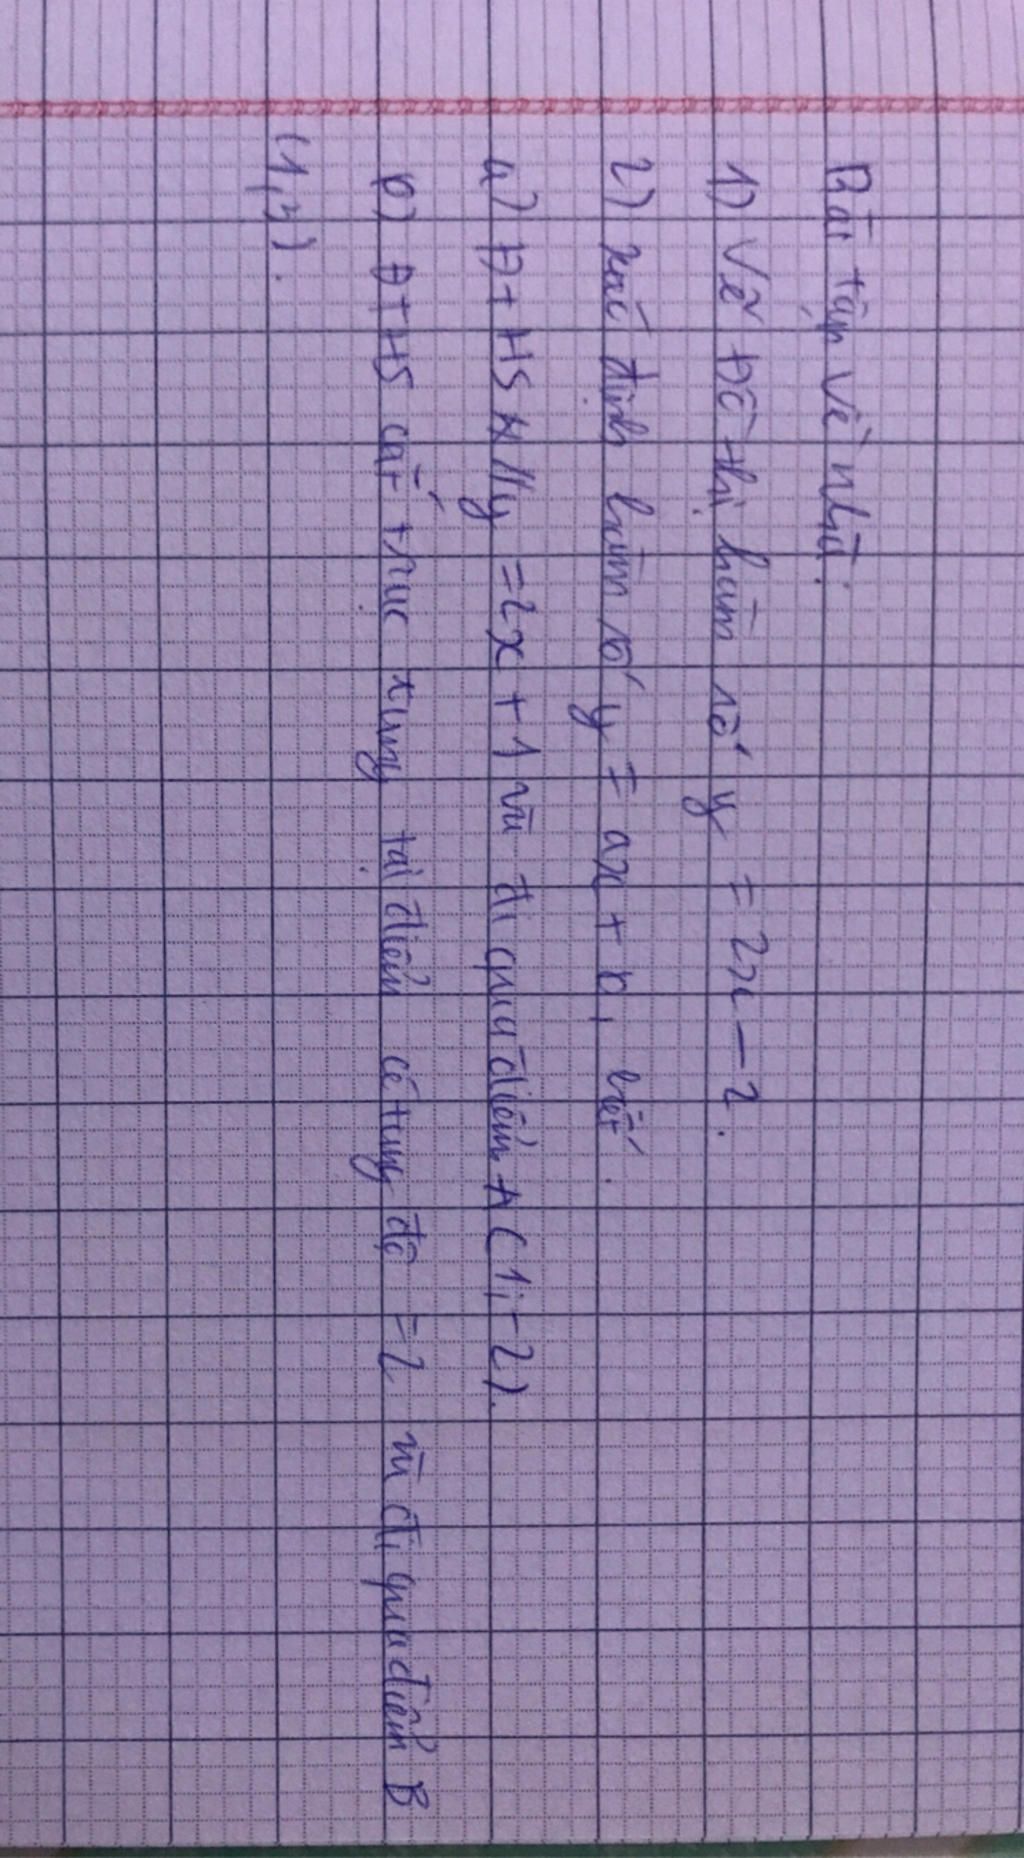 Bài tập về nhà:
1) Vẽ đồ thị hàm số y = 2x - 2.
2) xác định hàm số y = ax + b, biết.
a) ĐTHS // y = 2x + 1 và đi qua điểm A (1; -2).
b) ĐTHS cắt trục tung tại điểm có tung độ = 2 và đi qua điểm B
(1; 3).